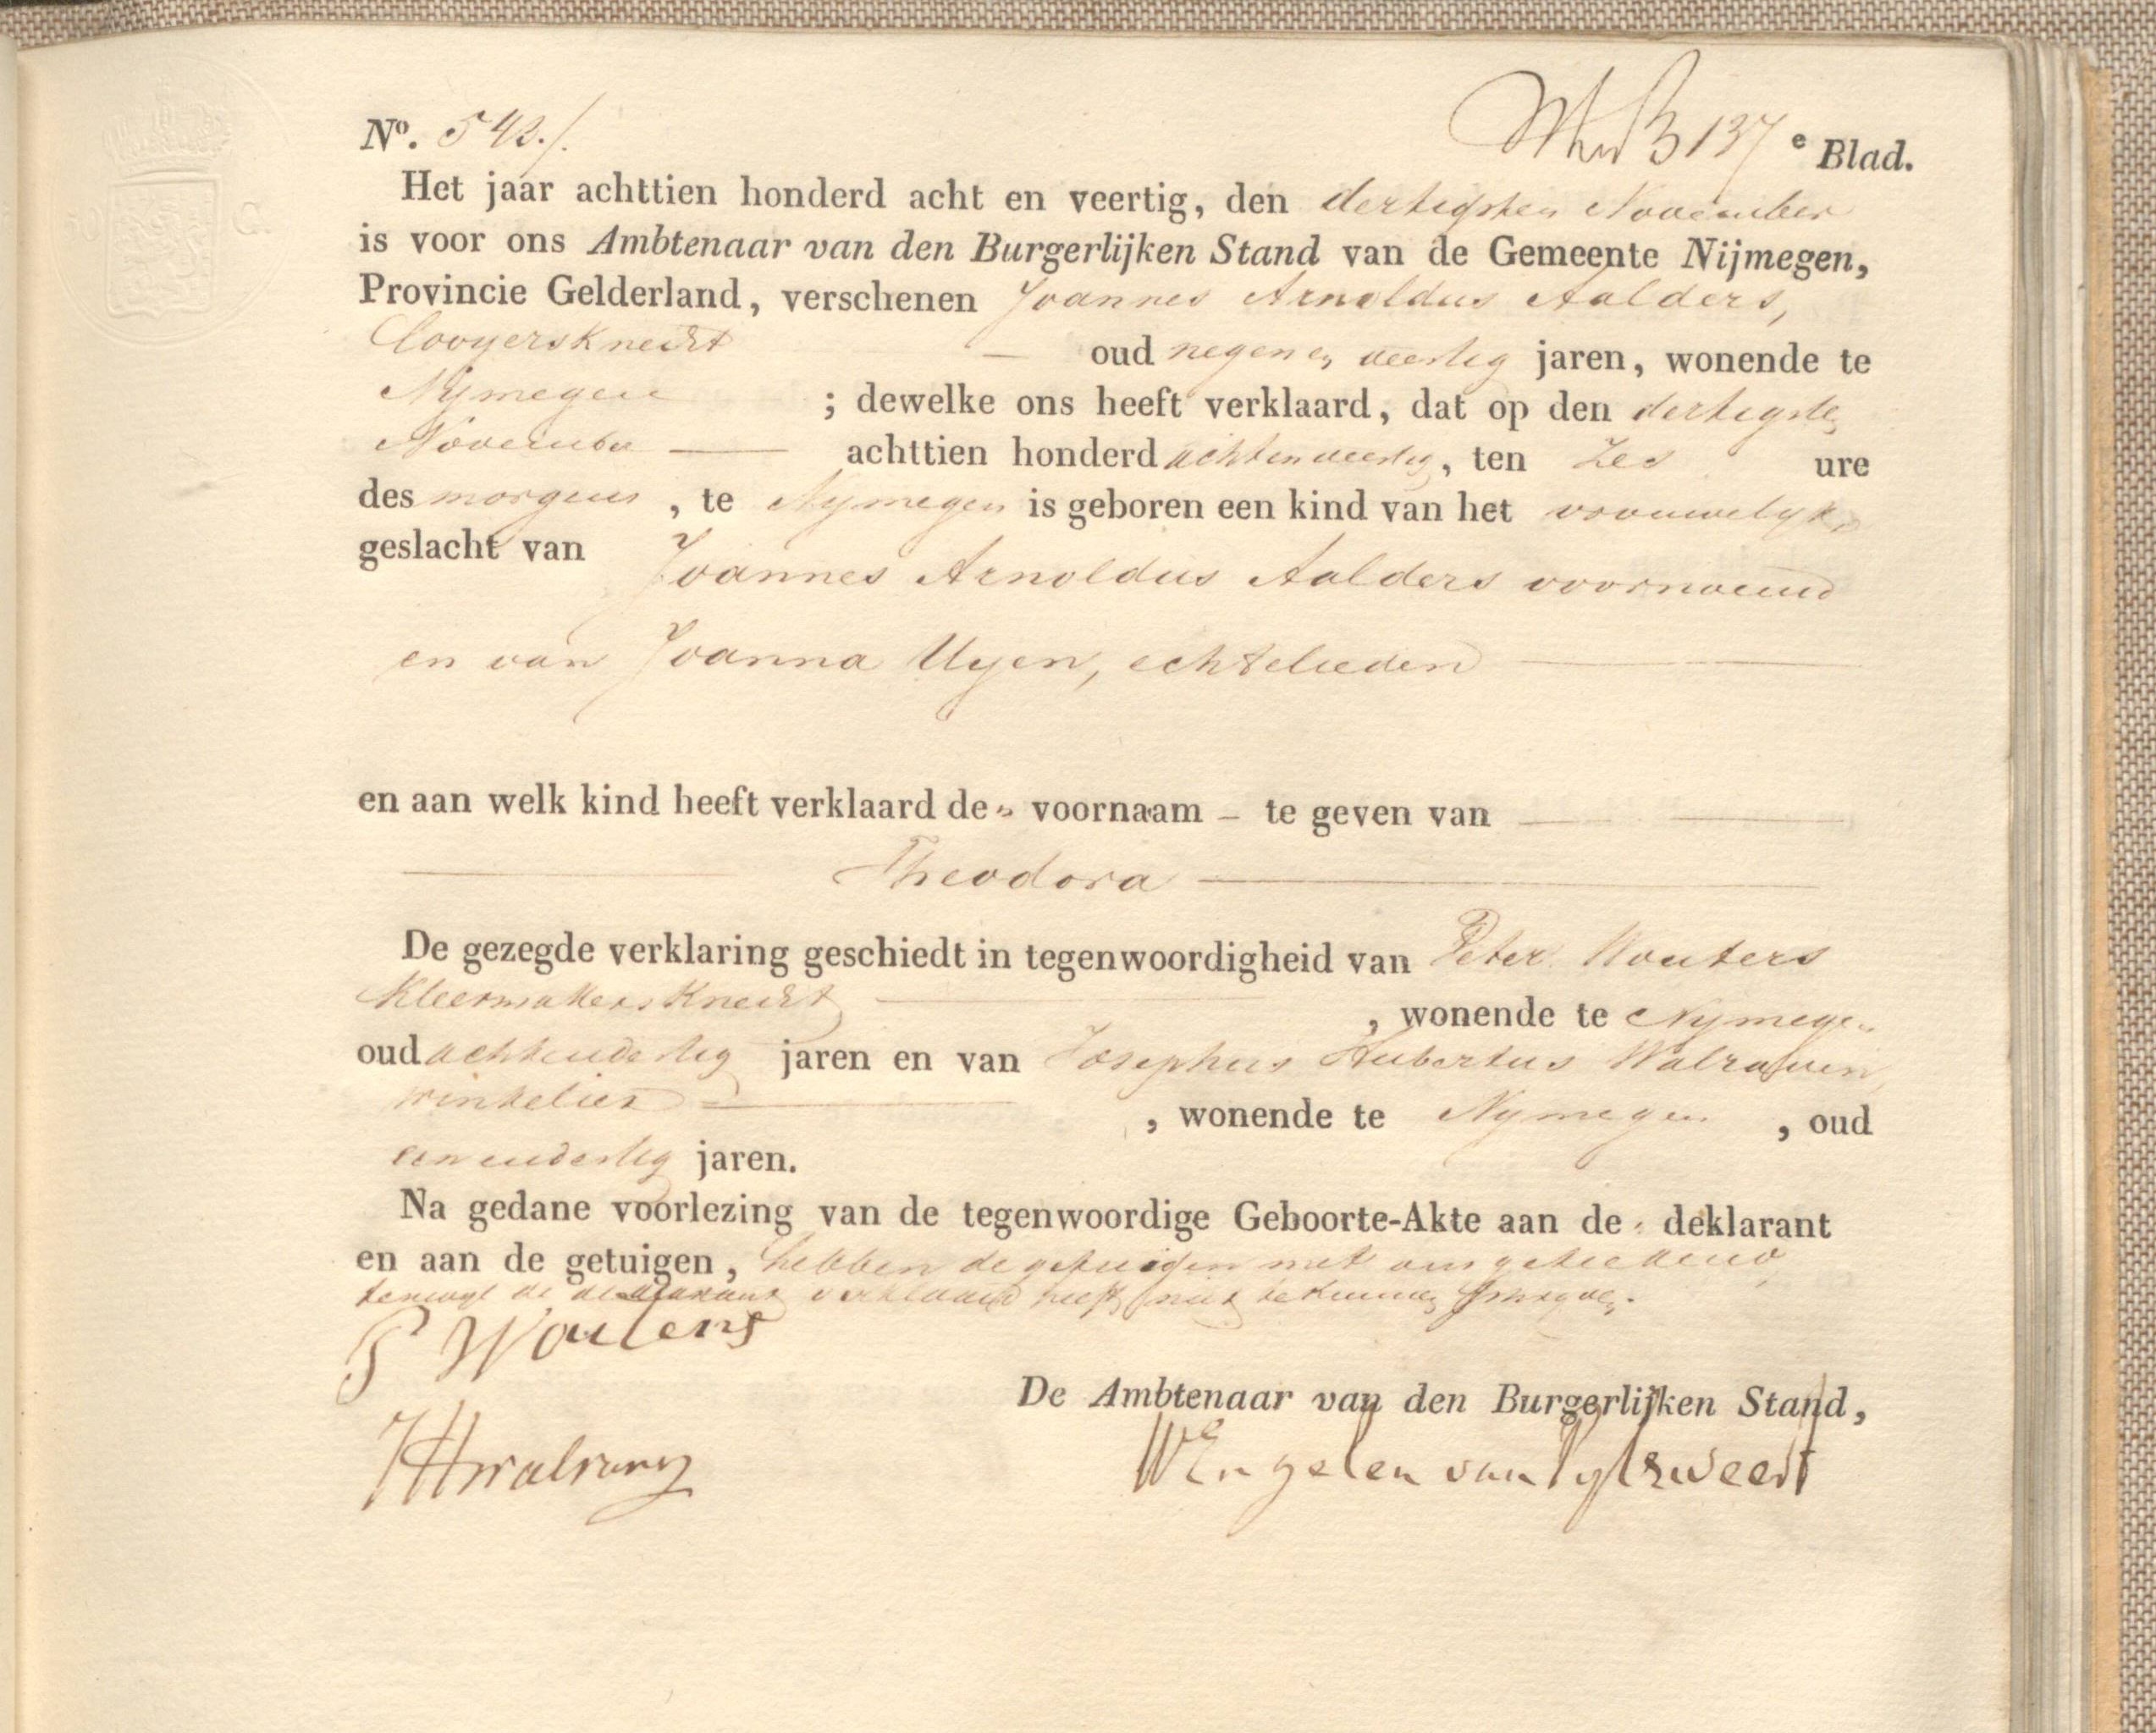 Nº. 542./. 137 e Blad.
Het jaar achttien honderd acht en veertig, den dertigsten November
is voor ons Ambtenaar van den Burgerlijken Stand van de Gemeente Nijmegen,
Provincie Gelderland, verschenen Joannes Arnoldus Aalders,
Looyersknecht — oud negen en veertig jaren, wonende te
Nymegen ; dewelke ons heeft verklaard, dat op den dertigsten
November — achttien honderd achtenveertig, ten zes ure
des morgens, te Nymegen is geboren een kind van het vrouwelyke
geslacht van Joannes Arnoldus Aalders voornoemd
en van Joanna Uyen, echtelieden —
en aan welk kind heeft verklaard den voornaam – te geven van —
— Theodora —
De gezegde verklaring geschiedt in tegenwoordigheid van Peter Wouters
Kleermakers Knecht — , wonende te Nymegen
oud achtendertig jaren en van Josephus Hubertus Walraven,
winkelier — , wonende te Nymegen , oud
eenendertig jaren.
Na gedane voorlezing van de tegenwoordige Geboorte-Akte aan den deklarant
en aan de getuigen, hebben de getuigen met ons geteekend,
terwyl de deklarant verklaard heeft niet te kunnen schryven.
P Wouters
De Ambtenaar van den Burgerlijken Stand,
JHWalraven
WEngelen van Pijlsweert